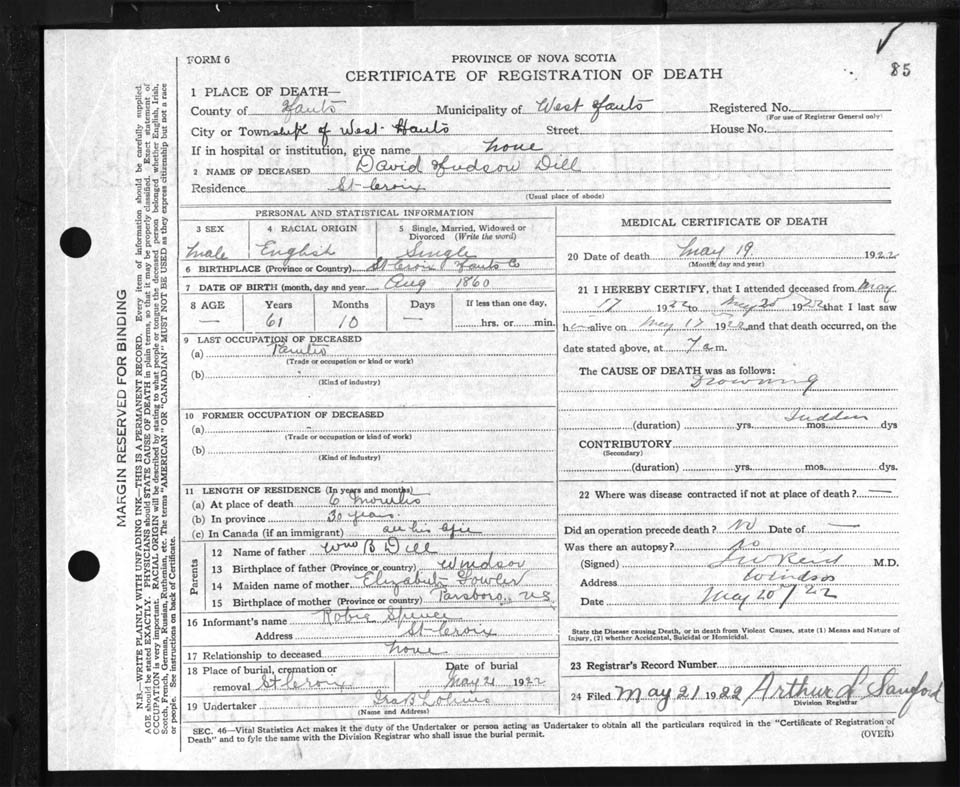 85
FORM 6
PROVINCE OF NOVA SCOTIA
CERTIFICATE OF REGISTRATION OF DEATH
1 PLACE OF DEATH—
County of Hants Municipality of West Hants Registered No.
(For use of Registrar General only)
City or Township of West Hants Street House No.
If in hospital or institution, give name None
2 NAME OF DECEASED David Hudson Dill
Residence St Croix
(Usual place of abode)
PERSONAL AND STATISTICAL INFORMATION
3 SEX 4 RACIAL ORIGIN 5 Single, Married, Widowed or Divorced (Write the word)
Male English Single
6 BIRTHPLACE (Province or Country) St Croix Hants Co
7 DATE OF BIRTH (month, day and year) Aug 1860
8 AGE Years Months Days If less than one day,
— 61 10 — hrs. or min.
9 LAST OCCUPATION OF DECEASED
(a)
(Trade or occupation or kind or work)
(b)
(Kind of industry)
10 FORMER OCCUPATION OF DECEASED
(a)
(Trade or occupation or kind of work)
(b)
(Kind of industry)
11 LENGTH OF RESIDENCE (In years and months)
(a) At place of death 6 Months
(b) In province 30 years.
(c) In Canada (if an immigrant) all his life
Parents
12 Name of father Wm B Dill
13 Birthplace of father (Province or country) Windsor
14 Maiden name of mother Elizabeth
15 Birthplace of mother (Province or country) Parsboro, NS
16 Informant's name Robie
Address St Croix
17 Relationship to deceased None
18 Place of burial, cremation or removal St Croix Date of burial May 21 1922
19 Undertaker Ira B
(Name and Address)
MEDICAL CERTIFICATE OF DEATH
20 Date of death May 19 1922
(Month, day and year)
21 I HEREBY CERTIFY, that I attended deceased from May
17 1922 to May 20 1922 that I last saw
h alive on May 17 1922 and that death occurred, on the
date stated above, at 7 a m.
The CAUSE OF DEATH was as follows:
Drowning
Sudden
(duration) yrs. mos. dys
CONTRIBUTORY
(Secondary)
(duration) yrs. mos. dys.
22 Where was disease contracted if not at place of death? —
Did an operation precede death? No Date of —
Was there an autopsy? No
(Signed) Reid M.D.
Address Windsor
Date May 20 / 22
State the Disease causing Death, or in death from Violent Causes, state (1) Means and Nature of
Injury, (2) whether Accidental, Suicidal or Homicidal.
23 Registrar's Record Number
24 Filed May 21 1922 Arthur L Sanford
Division Registrar
SEC. 46—Vital Statistics Act makes it the duty of the Undertaker or person acting as Undertaker to obtain all the particulars required in the "Certificate of Registration of
Death" and to fyle the same with the Division Registrar who shall issue the burial permit.
(OVER)
MARGIN RESERVED FOR BINDING
N.B.—WRITE PLAINLY WITH UNFADING INK—THIS IS A PERMANENT RECORD. Every item of information should be carefully supplied.
AGE should be stated EXACTLY. PHYSICIANS should STATE CAUSE OF DEATH in plain terms, so that it may be properly classified. Exact statement of
OCCUPATION is very important. RACIAL ORIGIN will be described by stating to what people or tongue the deceased person belonged whether English, Irish,
Scotch, French, German, Russian, Ruthenian, etc. The terms "AMERICAN" OR "CANADIAN" MUST NOT BE USED as they express citizenship but not a race
or people. See instructions on back of Certificate.